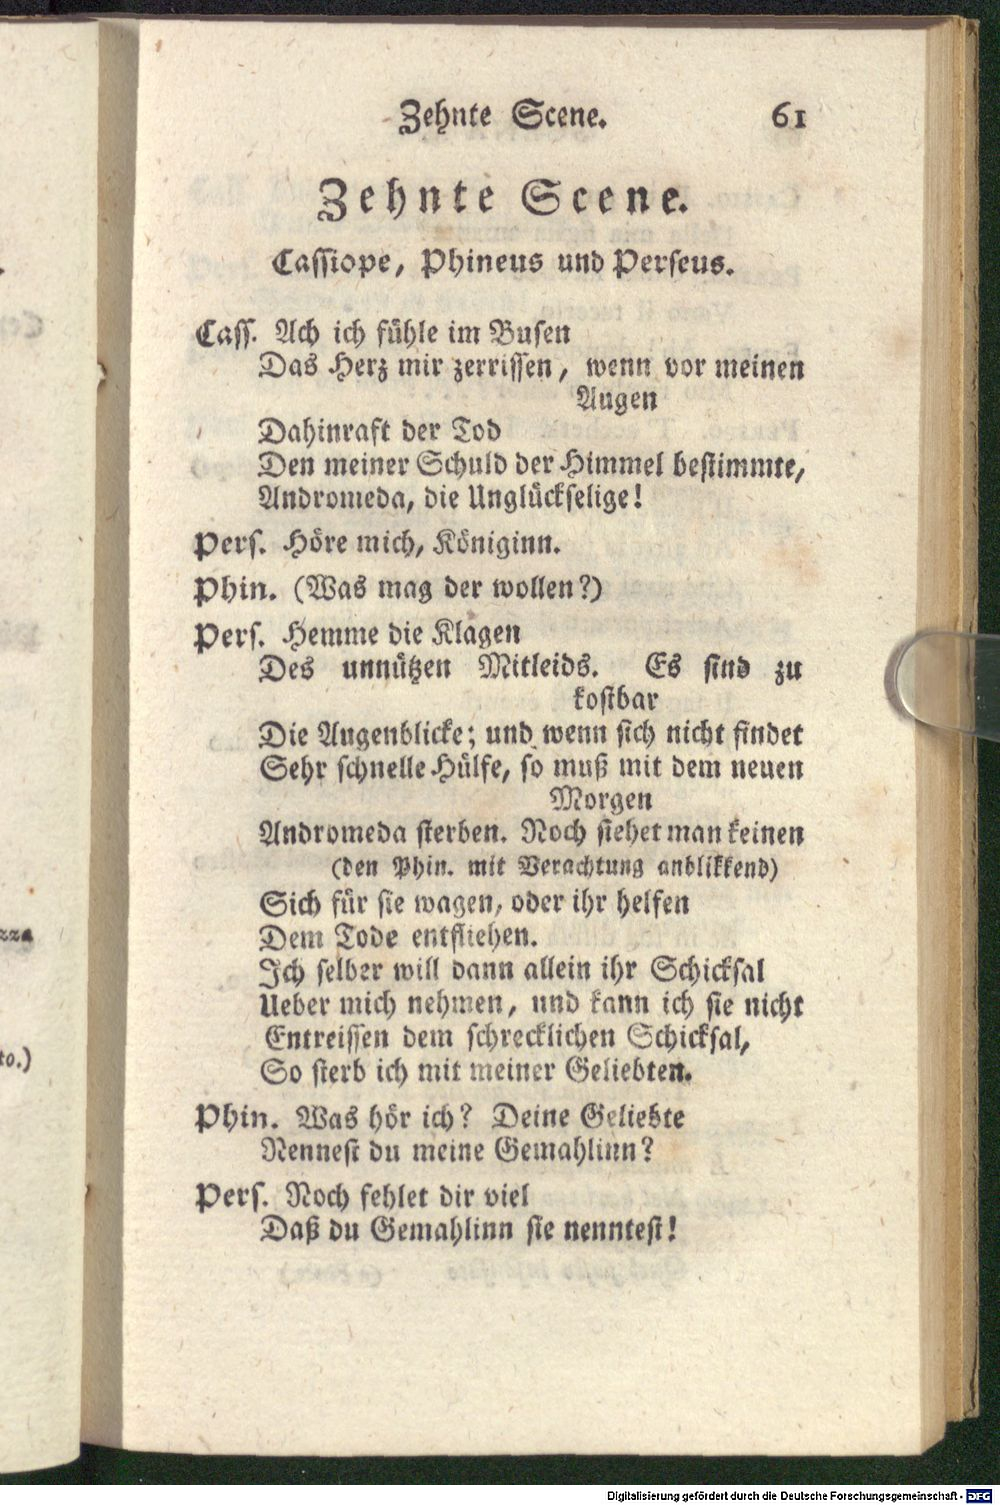 Zehnte Scene. 61
Zehnte Scene.
Cassiope, Phineus und Perseus.
Cass. Ach ich fühle im Busen
Das Herz mir zerrissen, wenn vor meinen
Augen
Dahinraft der Tod
Den meiner Schuld der Himmel bestimmte,
Andromeda, die Unglückselige!
Pers. Höre mich, Königinn.
Phin. (Was mag der wollen?)
Pers. Hemme die Klagen
Des unnützen Mitleids. Es sind zu
kostbar
Die Augenblicke; und wenn sich nicht findet
Sehr schnelle Hülfe, so muß mit dem neuen
Morgen
Andromeda sterben. Noch siehet man keinen
(den Phin. mit Verachtung anblikkend)
Sich für sie wagen, oder ihr helfen
Dem Tode entfliehen.
Ich selber will dann allein ihr Schicksal
Ueber mich nehmen, und kann ich sie nicht
Entreissen dem schrecklichen Schicksal,
So sterb ich mit meiner Geliebten.
Phin. Was hör ich? Deine Geliebte
Nennest du meine Gemahlinn?
Pers. Noch fehlet dir viel
Daß du Gemahlinn sie nenntest!
zza
to.)
Digitalisierung gefördert durch die Deutsche Forschungsgemeinschaft - DFG